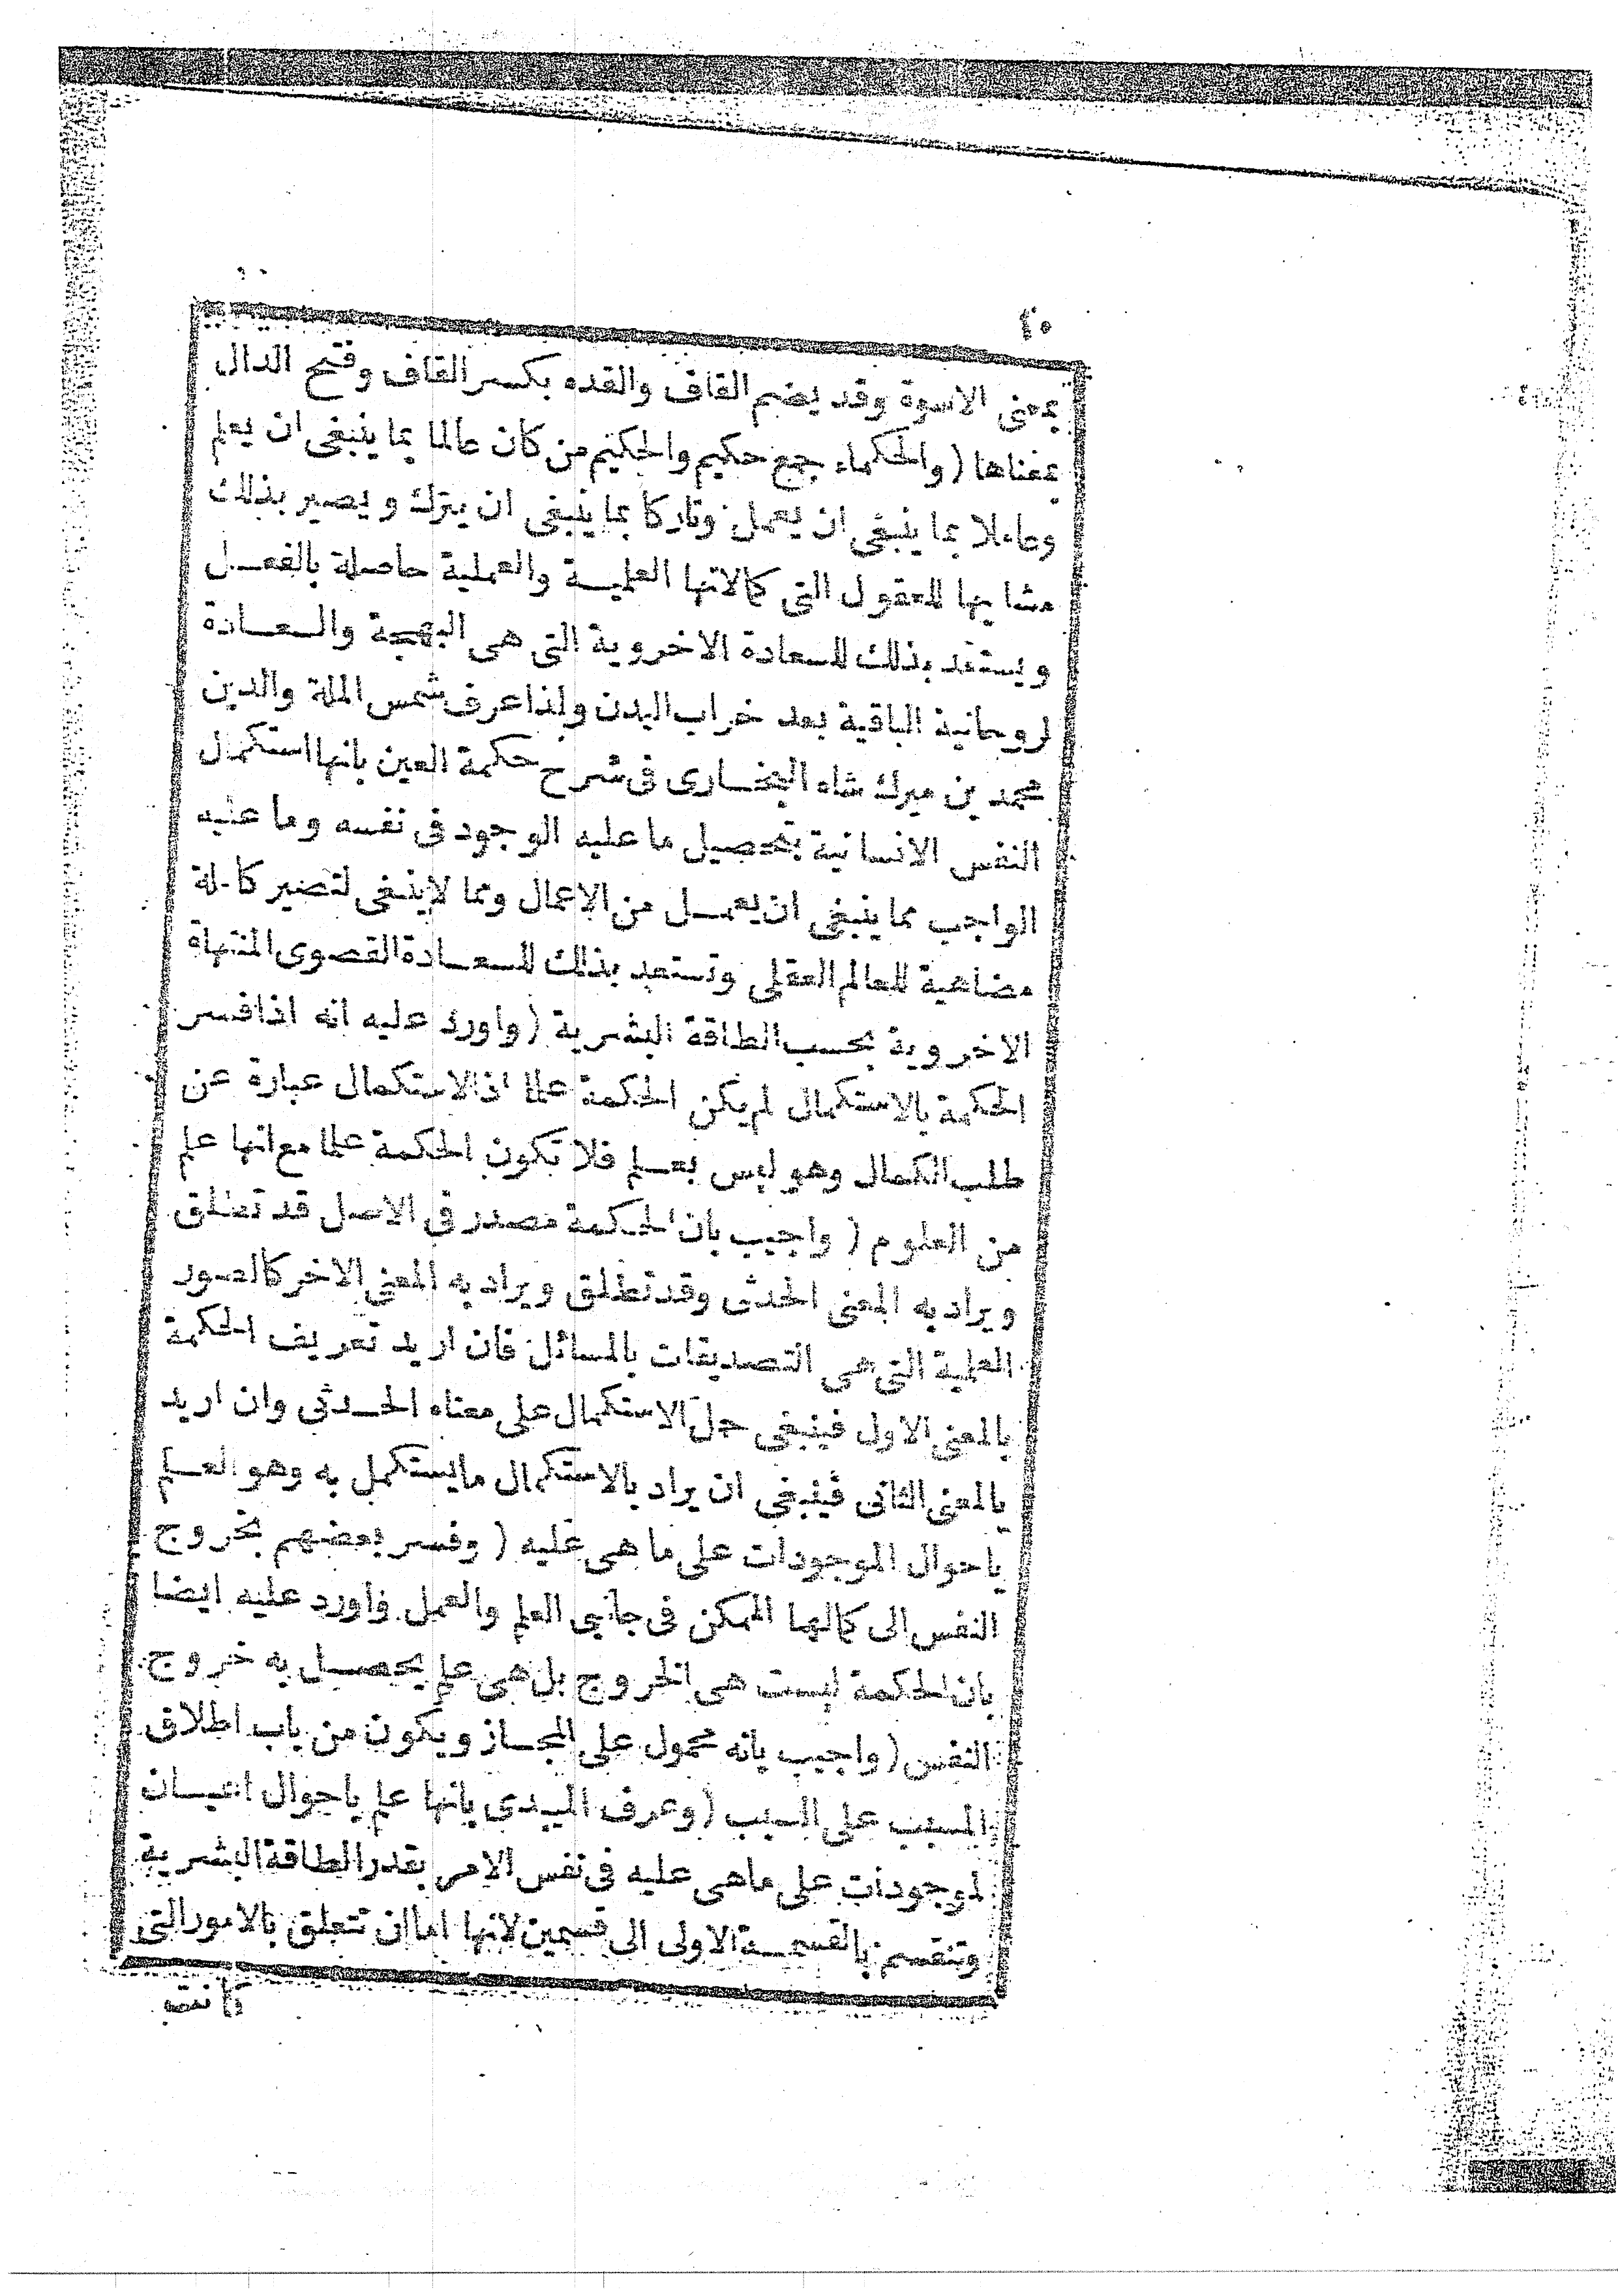 ٤٠
بمعنى الاسوة وقد يضم القاف والقده بكسر القاف وفتح الدال
بمعناها (والحكماء جمع حكيم والحكيم من كان عالما بما ينبغى ان يعلم
وعاملا بما ينبغى ان يعمل وتاركا بما ينبغى ان يترك ويصير بذلك
مشابها للعقول التى كمالاتها العلمية والعملية حاصلة بالفعل
ويستعد بذلك للسعادة الاخروية التى هى البهجة والسعادة
لروحانية الباقية بعد خراب البدن ولذا عرف شمس الملة والدين
محمد بن ميرك شاه البخارى فى شرح حكمة العين بانها استكمال
النفس الانسانية بتحصيل ما عليه الوجود فى نفسه وما عليه
الواجب مما ينبغى ان يعمل من الاعمال ومما لاينبغى لتصير كاملة
مضاهية للعالم العقلى وتستعد بذلك للسعادة القصوى المنتهاة
الاخروية بحسب الطاقة البشرية (واورد عليه انه اذا فسر
الحكمة بالاستكمال لم يكن الحكمة علما اذ الاستكمال عبارة عن
طلب الكمال وهو ليس بعلم فلا تكون الحكمة علما مع انها علم
من العلوم (واجيب بان الحكمة مصدر فى الاصل قد تطلق
ويراد به المعنى الحدثى وقد تطلق ويراد به المعنى الاخر كالصور
العلمية التى هى التصديقات بالمسائل فان اريد تعريف الحكمة
بالمعنى الاول فينبغى حمل الاستكمال على معناه الحدثى وان اريد
بالمعنى الثانى فينبغى ان يراد بالاستكمال ما يستكمل به وهو العلم
باحوال الموجودات على ما هى عليه (وفسر بعضهم بخروج
النفس الى كمالها الممكن فى جانبى العلم والعمل واورد عليه ايضا
بان الحكمة ليست هى الخروج بل هى علم يحصل به خروج
النفس (واجيب بانه محمول على المجاز ويكون من باب اطلاق
المسبب على السبب (وعرف الميبدى بانها علم باحوال اعيان
لموجودات على ماهى عليه فى نفس الامر بقدر الطاقة البشرية
وتنقسم بالقسمة الاولى الى قسمين لانها اما ان تتعلق بالامور التى